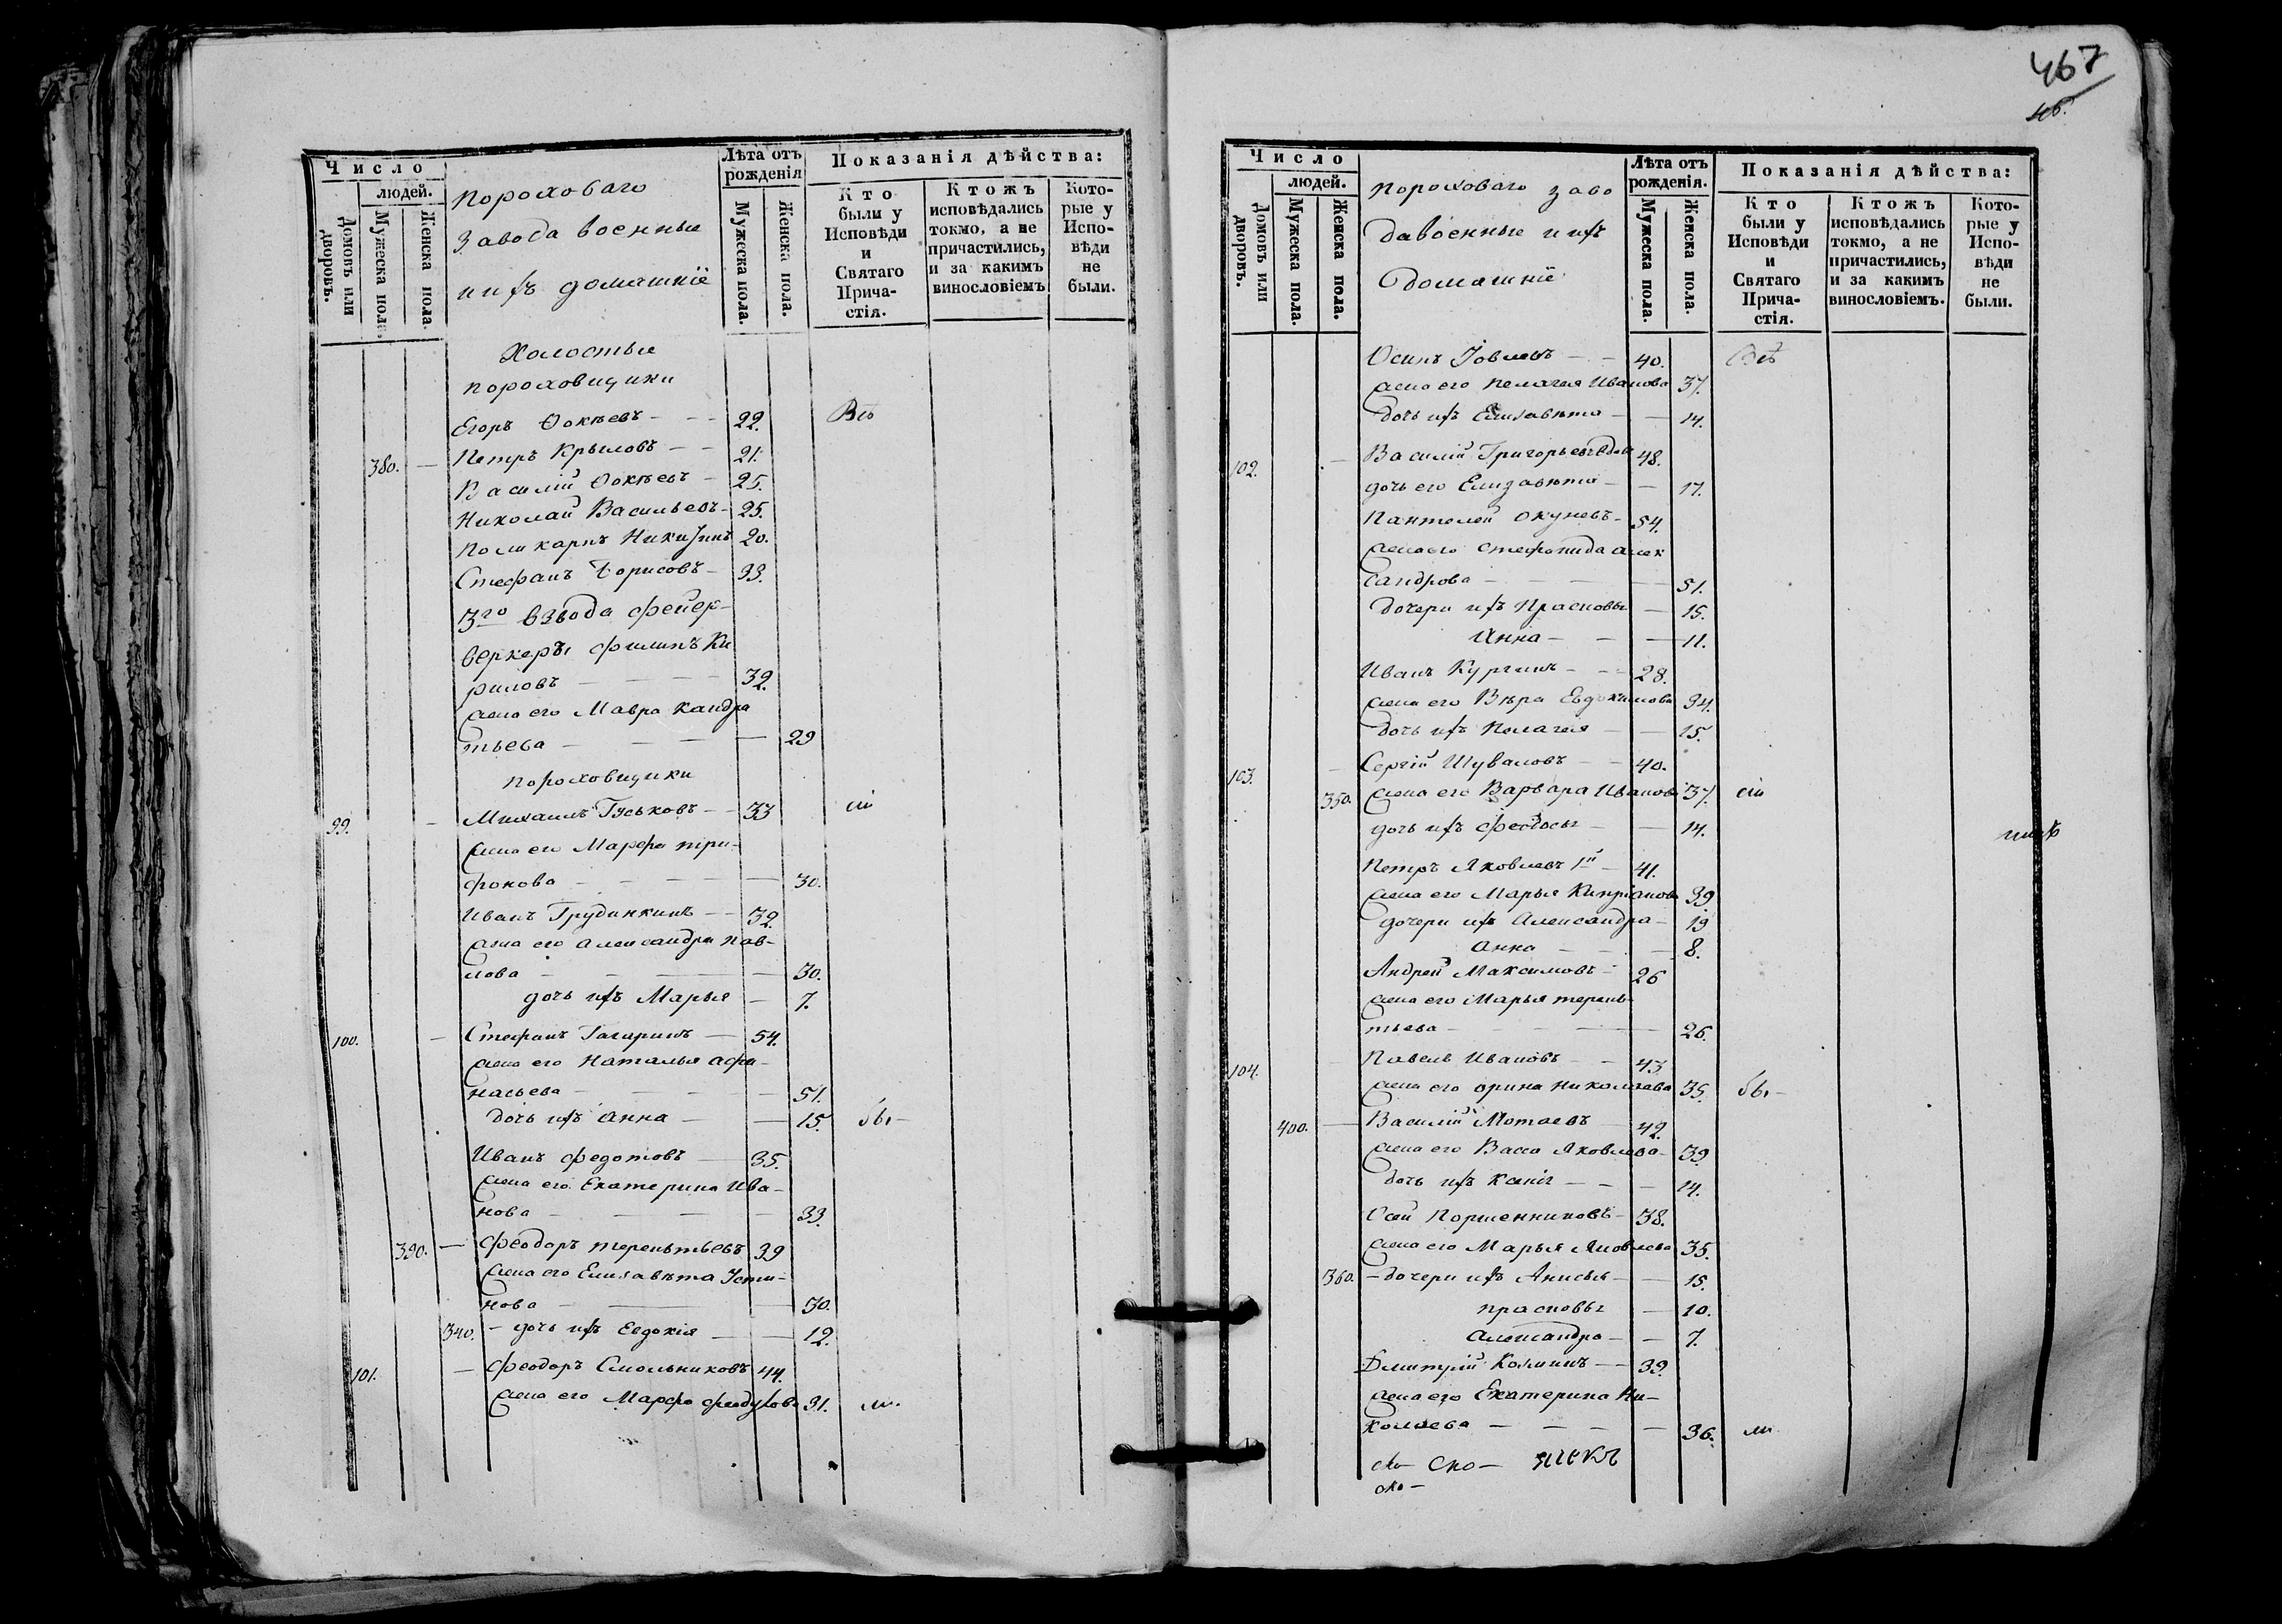 Число
людей.
Домовъ или дворовъ.
Мужеска пола.
Женска пола.
Пороховаго
завода военные
и ихъ домашніе
Лѣта отъ рожденія
Мужеска пола.
Женска пола.
Показанія дѣйства:
Кто были у Исповѣди и Святаго Причастія.
Ктожъ исповѣдались токмо, а не причастились, и за какимъ винословіемъ
Которые у Исповѣди не были.
Холостые
пороховщики
Егоръ Ѳокѣевъ - - 22. Всѣ
380. — Петръ Крыловъ - - 21.
Василій Ѳокѣевъ - 25.
Николай Васильевъ - 25.
Поликарпъ Никитинъ 20.
Стефанъ Борисовъ - 33.
3го взвода фейер-
веркеръ Филипъ Ки
риловъ - - - - 32.
жена его Мавра Кандра
тьева - - - - 29
пороховщики
99. - Михаилъ Гуськовъ - - 33
жена его Марфа три-
фонова - - - - 30.
Иванъ Грудинкинъ - - 32.
жена его Александра пав-
лова - - - - 30.
дочь ихъ Марья - 7.
100. - Стефанъ Гагаринъ - 54.
жена его Наталья афа-
насьева - - - - 51.
дочь ихъ Анна - - 15. бы-
Иванъ Федотовъ - 35.
жена его Екатерина Ива-
нова - - - - 33.
390. — Феодоръ терентьевъ 39
жена его Елизавѣта Усти-
нова - - - 30.
340. - дочь ихъ Евдокія - - 12.
101. - Феодоръ Смольниковъ 44.
жена его Марфа 31. ли.
467
Число
людей.
Домовъ или дворовъ.
Мужеска пола.
Женска пола.
Пороховаго заво
да военные и ихъ
домашніе
Лѣта отъ рожденія.
Мужеска пола.
Женска пола.
Показанія дѣйства:
Кто были у Исповѣди и Святаго Причастія.
Ктожъ исповѣдались токмо, а не причастились, и за какимъ винословіемъ.
Которые у Исповѣди не были.
Осипъ Іовлевъ - - 40. Всѣ
жена его Пелагея Иванова 37.
дочь ихъ Елизавѣта - - 14.
102. - Василій Григорьевъ вдов 48.
дочь его Елизавѣта - - 17.
Пантелей Окуневъ - 54.
жена его Стефанида алек
сандрова - - - - 51.
дочери ихъ Прасковья - 15.
Анна - - - 11.
Иванъ Кургинъ - - 28.
жена его Вѣра Евдокимова 34.
дочь ихъ Пелагея - - 15.
103. - Сергій Шуваловъ - - 40.
350. жена его Варвара Иванова 37.
дочь ихъ Феодосья - - 14.
Петръ Яковлевъ 1й - 41.
жена его Марья Кипріанова 39
дочери ихъ Александра - 19
Анна - - - 8.
Андрей Максимовъ - 26
жена его Марья терень-
тьева - - - - 26.
104. - Павелъ Ивановъ - - 43
жена его Орина Николаева 35. бы-
400. — Василій Мотаевъ - 42.
жена его Васса Яковлева - 39
дочь ихъ - - - 14.
Осій Поршенниковъ - 38.
жена его Марья Яковлева 35.
360. - дочери ихъ Анисья - - 15.
прасковья - 10.
Александра - - 7.
Дмитрій Козминъ - - 39.
жена его Екатерина Ни-
колаева - - - - 36. ли